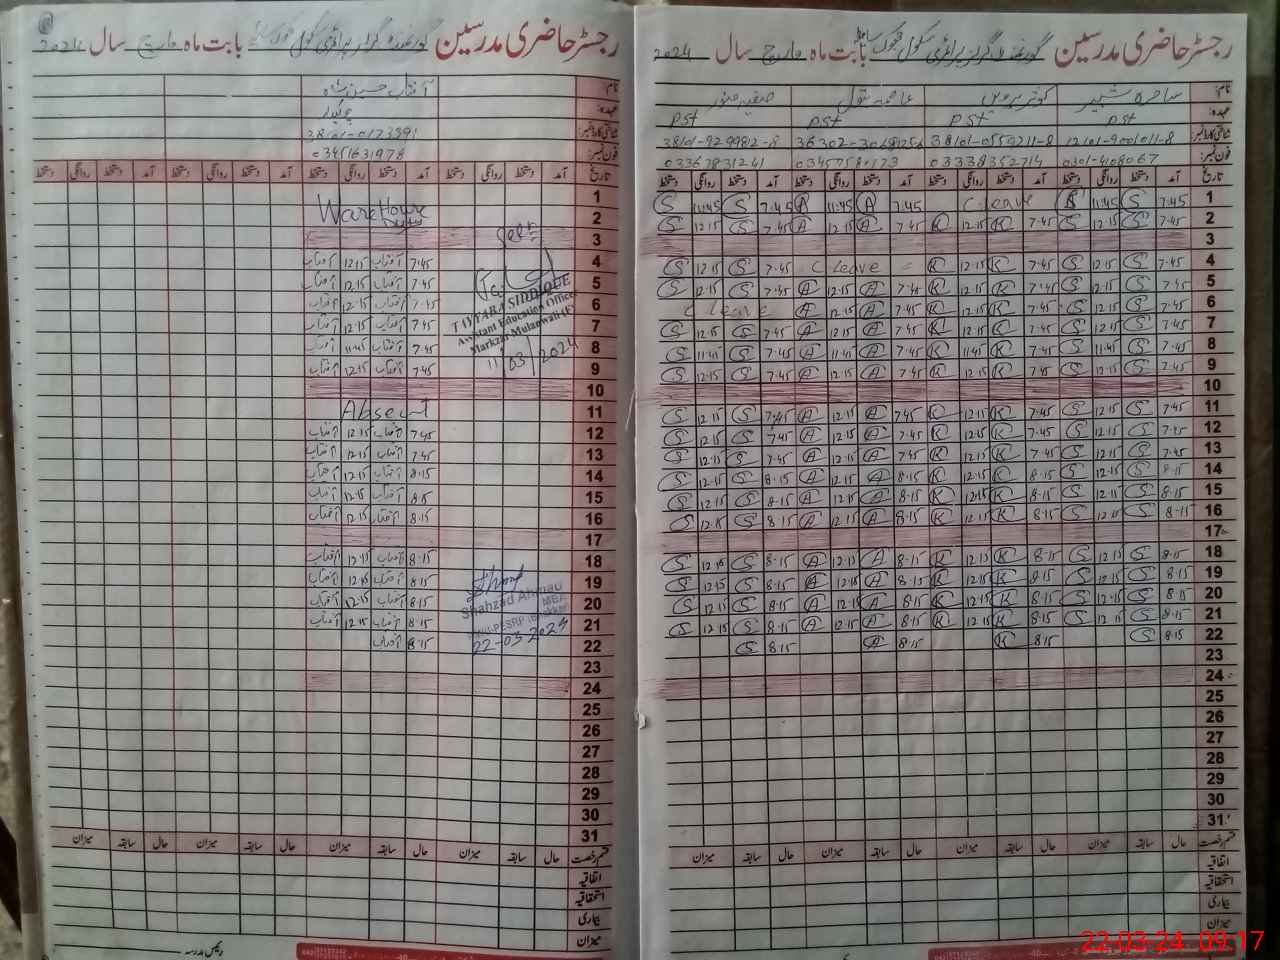 رجسٹر حاضری مدرسین گورنمنٹ گرلز پرائمری سکول بابت ماہ مارچ سال 2024
نام: ساجرہ شبیر کوثر پروین عاصمہ بتول صفیہ منور
عہدہ: PST PST PST PST
شناختی کارڈ نمبر: 38101-0559211-8 38101-9299812-8
فون نمبر: 0301-4108067 03338352714 03457580173 03367831241
تاریخ آمد دستخط روانگی دستخط آمد دستخط روانگی دستخط آمد دستخط روانگی دستخط آمد دستخط روانگی دستخط
1 7:45 S 11:45 S C-leave 7:45 A 11:45 A 7:45 S 11:45 S
2 7:45 S 12:15 S 7:45 K 12:15 K 7:45 A 12:15 A 7:45 S 12:15 S
3
4 7:45 S 12:15 S 7:45 K 12:15 K C leave 7:45 S 12:15 S
5 7:45 S 12:15 S 7:45 K 12:15 K 7:45 A 12:15 A 7:45 S 12:15 S
6 7:45 S 12:15 S 7:45 K 12:15 K 7:45 A 12:15 A C leave
7 7:45 S 12:15 S 7:45 K 12:15 K 7:45 A 12:15 A 7:45 S 12:15 S
8 7:45 S 11:45 S 7:45 K 11:45 K 7:45 A 11:45 A 7:45 S 11:45 S
9 7:45 S 12:15 S 7:45 K 12:15 K 7:45 A 12:15 A 7:45 S 12:15 S
10
11 7:45 S 12:15 S 7:45 K 12:15 K 7:45 A 12:15 A 7:45 S 12:15 S
12 7:45 S 12:15 S 7:45 K 12:15 K 7:45 A 12:15 A 7:45 S 12:15 S
13 7:45 S 12:15 S 7:45 K 12:15 K 7:45 A 12:15 A 7:45 S 12:15 S
14 8:15 S 12:15 S 8:15 K 12:15 K 8:15 A 12:15 A 8:15 S 12:15 S
15 8:15 S 12:15 S 8:15 K 12:15 K 8:15 A 12:15 A 8:15 S 12:15 S
16 8:15 S 12:15 S 8:15 K 12:15 K 8:15 A 12:15 A 8:15 S 12:15 S
17
18 8:15 S 12:15 S 8:15 K 12:15 K 8:15 A 12:15 A 8:15 S 12:15 S
19 8:15 S 12:15 S 8:15 K 12:15 K 8:15 A 12:15 A 8:15 S 12:15 S
20 8:15 S 12:15 S 8:15 K 12:15 K 8:15 A 12:15 A 8:15 S 12:15 S
21 8:15 S 12:15 S 8:15 K 12:15 K 8:15 A 12:15 A 8:15 S 12:15 S
22 8:15 S 8:15 K 8:15 A 8:15 S
23
24
25
26
27
28
29
30
31
قسم رخصت حال سابقہ میزان حال سابقہ میزان حال سابقہ میزان حال سابقہ میزان
اتفاقیہ
استحقاقیہ
بیماری
میزان
رجسٹر حاضری مدرسین گورنمنٹ گرلز پرائمری سکول بابت ماہ مارچ سال 2024
نام: آفتاب حسین شاہ
عہدہ: چوکیدار
شناختی کارڈ نمبر:
فون نمبر: 03451631978
تاریخ آمد دستخط روانگی دستخط آمد دستخط روانگی دستخط آمد دستخط روانگی دستخط آمد دستخط روانگی دستخط
1 WareHouse
2 Duty
3
4 7:45 آفتاب 12:15 آفتاب
5 7:45 آفتاب 12:15 آفتاب
6 7:45 آفتاب 12:15 آفتاب
7 7:45 آفتاب 12:15 آفتاب
8 7:45 آفتاب 11:45 آفتاب
9 7:45 آفتاب 12:15 آفتاب
10
11 Absent
12 7:45 آفتاب 12:15 آفتاب
13 7:45 آفتاب 12:15 آفتاب
14 8:15 آفتاب 12:15 آفتاب
15 8:15 آفتاب 12:15 آفتاب
16 8:15 آفتاب 12:15 آفتاب
17
18 8:15 آفتاب 12:15 آفتاب
19 8:15 آفتاب 12:15 آفتاب
20 8:15 آفتاب 12:15 آفتاب
21 8:15 آفتاب 12:15 آفتاب
22 8:15 آفتاب
23
24
25
26
27
28
29
30
31
Seen
TAYYABA SIDDIQUE
Assistant Education Officer
Markaz-Mulanwali (F)
11/03/2024
Shahzad Ahmad
MEA
22-03-2024
قسم رخصت حال سابقہ میزان حال سابقہ میزان حال سابقہ میزان حال سابقہ میزان
اتفاقیہ
استحقاقیہ
بیماری
میزان
رئیس مدرسہ
22-03-24 09:17